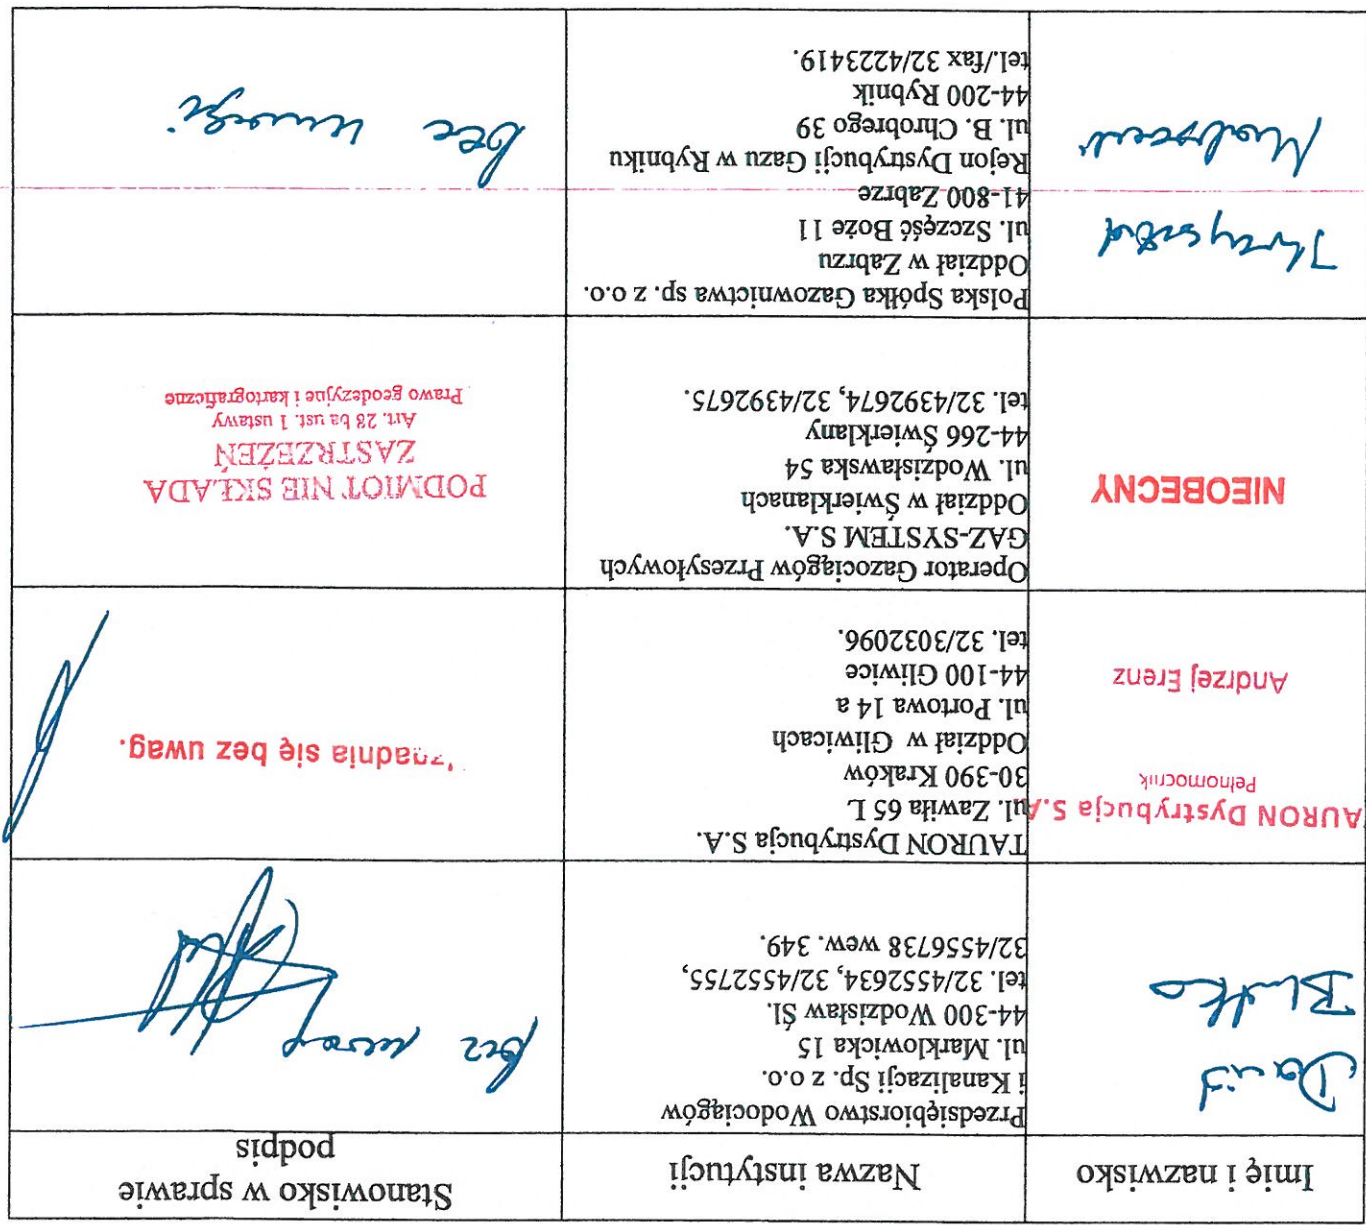 Imię i nazwisko
Nazwa instytucji
Stanowisko w sprawie
podpis
Dawid
Blutko
Przedsiębiorstwo Wodociągów
i Kanalizacji Sp. z o.o.
ul. Marklowicka 15
44-300 Wodzisław Śl.
tel. 32/4552634, 32/4552755,
32/4556738 wew. 349.
bez uwag
AURON Dystrybucja S.A.
Pełnomocnik
Andrzej Erenz
TAURON Dystrybucja S.A.
ul. Zawiła 65 L
30-390 Kraków
Oddział w Gliwicach
ul. Portowa 14 a
44-100 Gliwice
tel. 32/3032096.
zgadnia się bez uwag.
NIEOBECNY
Operator Gazociągów Przesyłowych
GAZ-SYSTEM S.A.
Oddział w Świerklanach
ul. Wodzisławska 54
44-266 Świerklany
tel. 32/4392674, 32/4392675.
PODMIOT NIE SKŁADA
ZASTRZEŻEŃ
Art. 28 ba ust. 1 ustawy
Prawo geodezyjne i kartograficzne
Krzysztof
Polska Spółka Gazownictwa sp. z o.o.
Oddział w Zabrzu
ul. Szczęść Boże 11
41-800 Zabrze
Rejon Dystrybucji Gazu w Rybniku
ul. B. Chrobrego 39
44-200 Rybnik
tel./fax 32/4223419.
bez uwagi